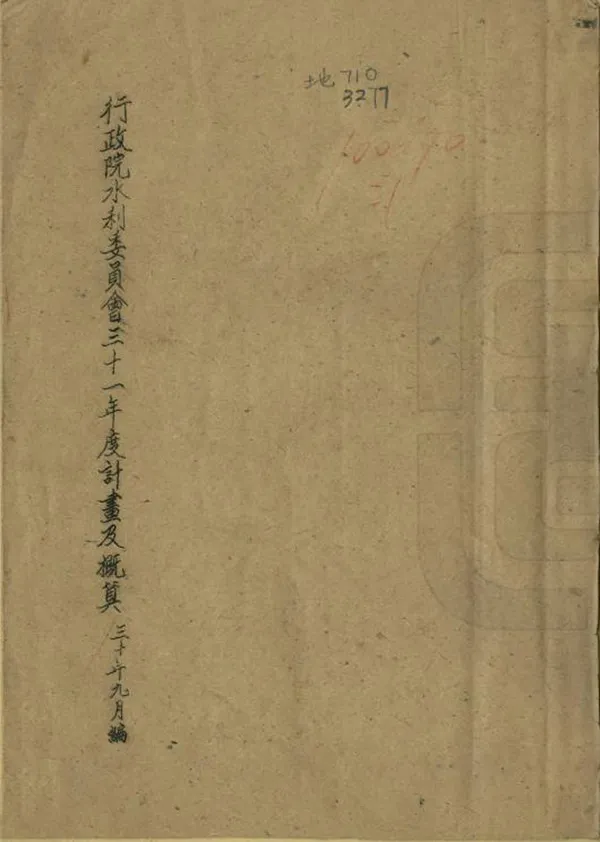 地710
3277
行政院水利委員會三十一年度計畫及概算 三十年九月編